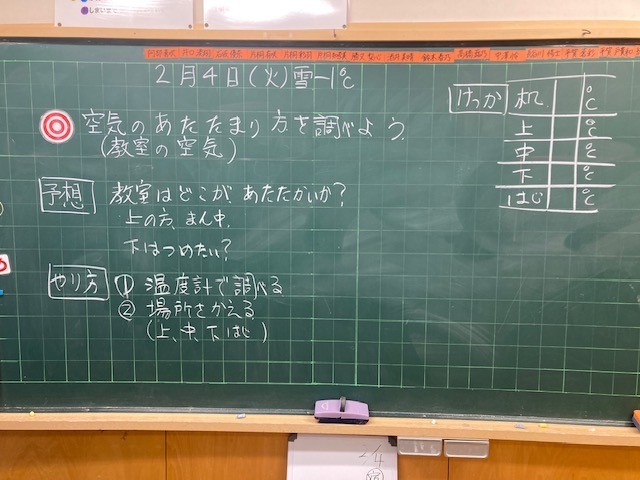 2月4日(火)雪-1℃
空気のあたたまり方を調べよう。
(教室の空気)
予想 教室はどこが、あたたかいか?
上の方、まん中、
下はつめたい?
やり方 ① 温度計で調べる
② 場所をかえる
(上、中、下、はじ)
けっか 机 ℃
上 ℃
中 ℃
下 ℃
はじ ℃
2/4